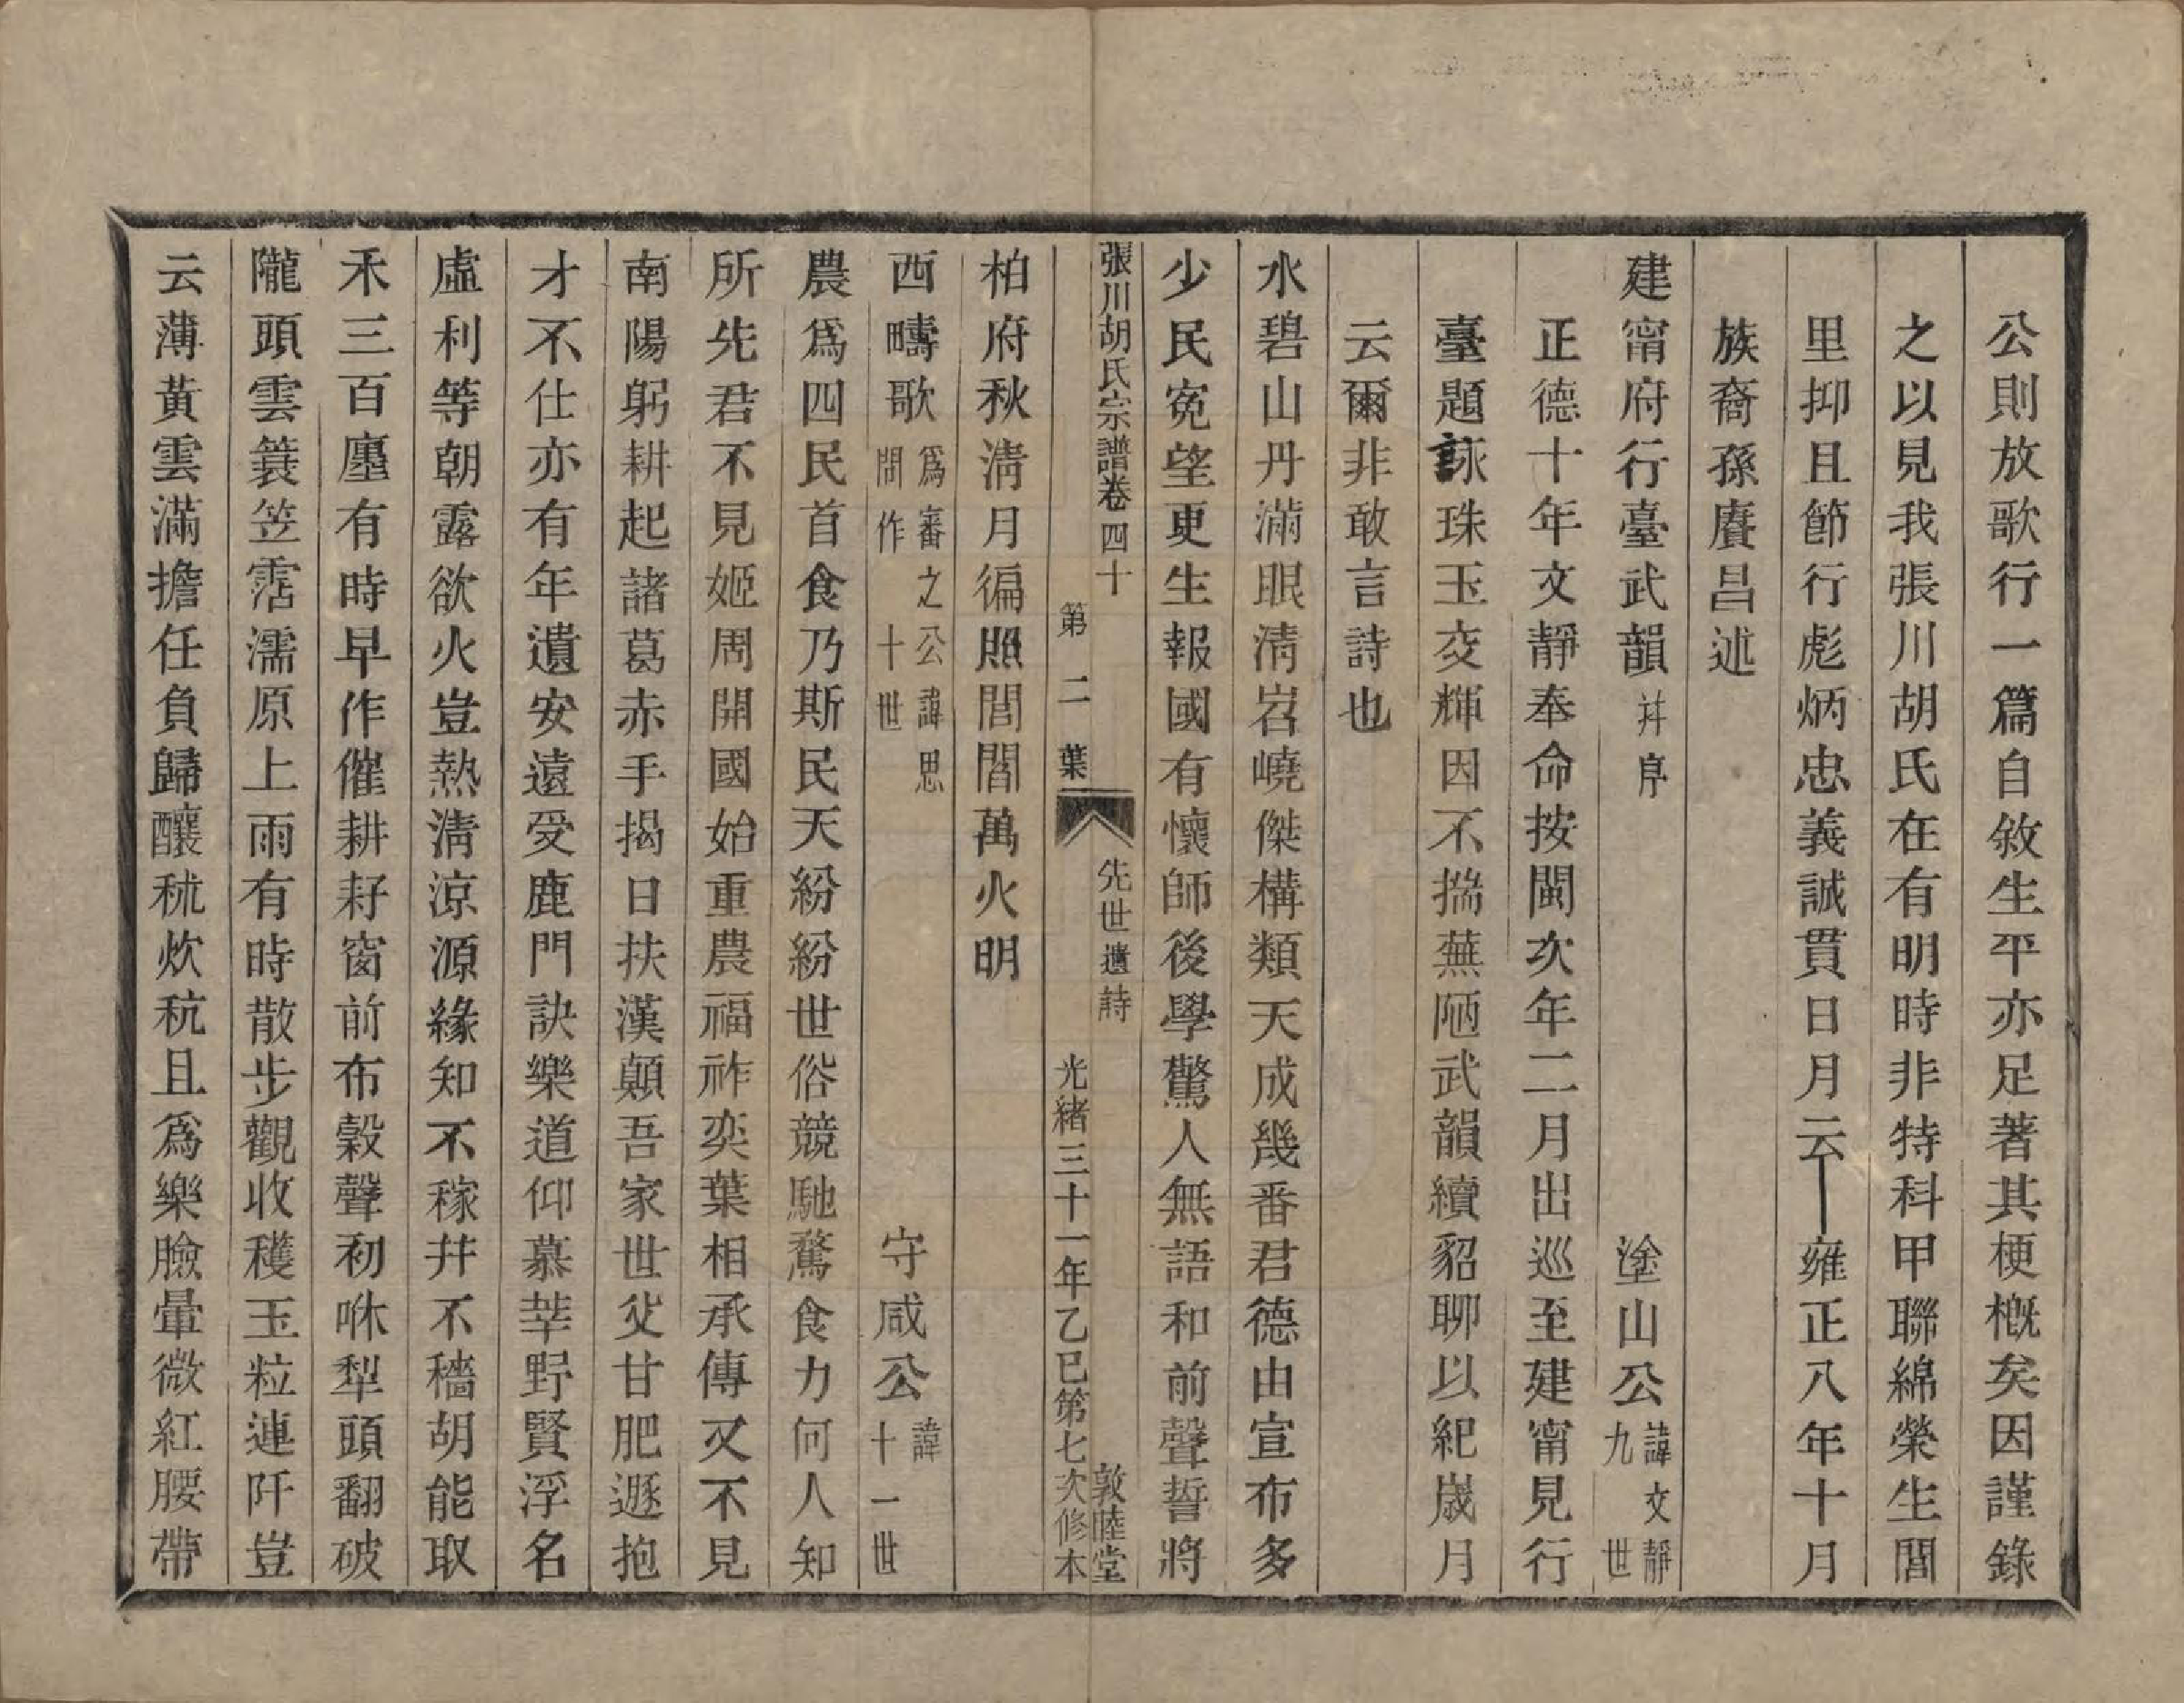 公則放歌行一篇自敘生平亦足著其梗概矣因謹錄
之以見我張川胡氏在有明時非特科甲聯綿榮生閭
里抑且節行彪炳忠義誠貫日月云雍正八年十月
族裔孫賡昌述
建甯府行臺武韻 并序 塗山公 諱文靜 九世
正德十年文靜奉命按閩次年二月出巡至建甯見行
臺題詠珠玉交輝因不揣蕪陋武韻續貂聊以紀歲月
云爾非敢言詩也
水碧山丹滿眼淸岧嶢傑構類天成幾番君德由宣布多
少民寃望更生報國有懷師後學驚人無語和前聲誓將
張川胡氏宗譜卷四十 先世遺詩 敦睦堂
第二葉 光緖三十一年乙巳第七次修本
柏府秋淸月徧照閭閻萬火明
西疇歌 爲審之公諱思閒作十世 守咸公 諱 十一世
農爲四民首食乃斯民天紛紛世俗競馳騖食力何人知
所先君不見姬周開國始重農福祚奕葉相承傳又不見
南陽躬耕起諸葛赤手揭日扶漢顚吾家世父甘肥遯抱
才不仕亦有年遺安遠受鹿門訣樂道仰慕莘野賢浮名
虛利等朝露欲火豈熱淸涼源緣知不稼幷不穡胡能取
禾三百廛有時早作催耕耔窗前布穀聲初咻犁頭翻破
隴頭雲簑笠霑濡原上雨有時散步觀收穫玉粒連阡豈
云薄黃雲滿擔任負歸釀秫炊秔且爲樂臉暈微紅腰帶